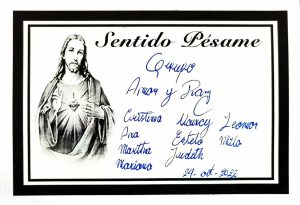 Sentido Pésame
Grupo
Amor y Paz
Cristina Nancy Leonor
Ana Estela Mila
Martha Judith
Mariana
29-oct-2022